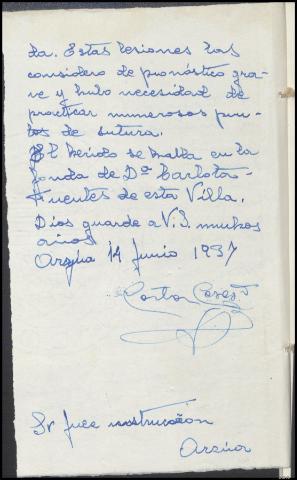 da. Estas lesiones las
considero de pronóstico gra-
ve y hubo necesidad de
practicar numerosos pun-
tos de sutura.
El herido se halla en la
fonda de Dª Carlota
Fuentes de esta Villa.
Dios guarde a V.S. muchos
años
Arzúa 14 Junio 1937
Sr Juez instrucción
Arzúa